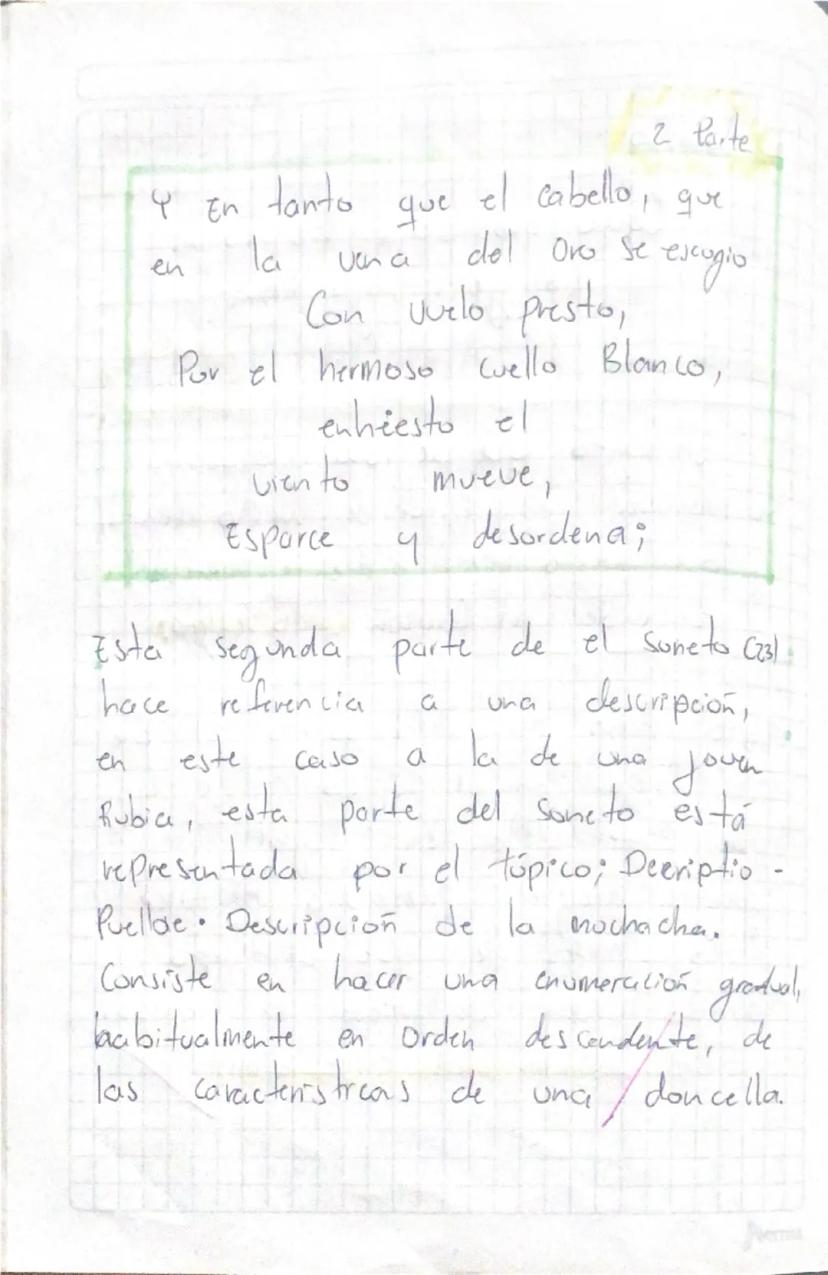 2 Parte
Y En tanto que el cabello, que
en la vena del Oro se escogio
Con vuelo presto,
Por el hermoso cuello Blanco,
enhiesto el
viento mueve,
Esparce y desordena;
Esta segunda parte de el Soneto (23)
hace referencia a una descripción,
en este caso a la de una joven
Rubia, esta parte del Soneto está
representada por el tópico; Decriptio -
Puellae. Descripción de la muchacha.
Consiste en hacer una enumeración gradual,
habitualmente en orden descendente, de
las características de una doncella.
Norma